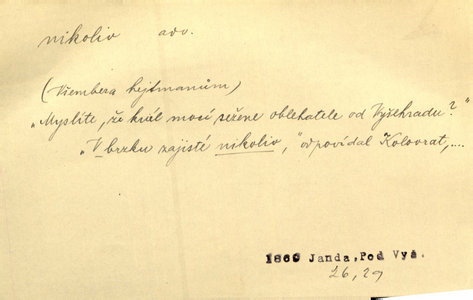 nikoliv adv.
(Všembera hejtmanům)
"Myslíte, že král mocí sežene oblehatele od Vyšehradu?"
"V brzku zajisté nikoliv," odpovídal Kolovrat,....
1869 Janda, Pod Vyš.
26, 29